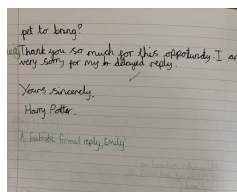 pet to bring?
Thank you so much for this opportunity. I am
very sorry for my delayed reply.
Yours sincerely,
Harry Potter.
A fantastic formal reply, Emily